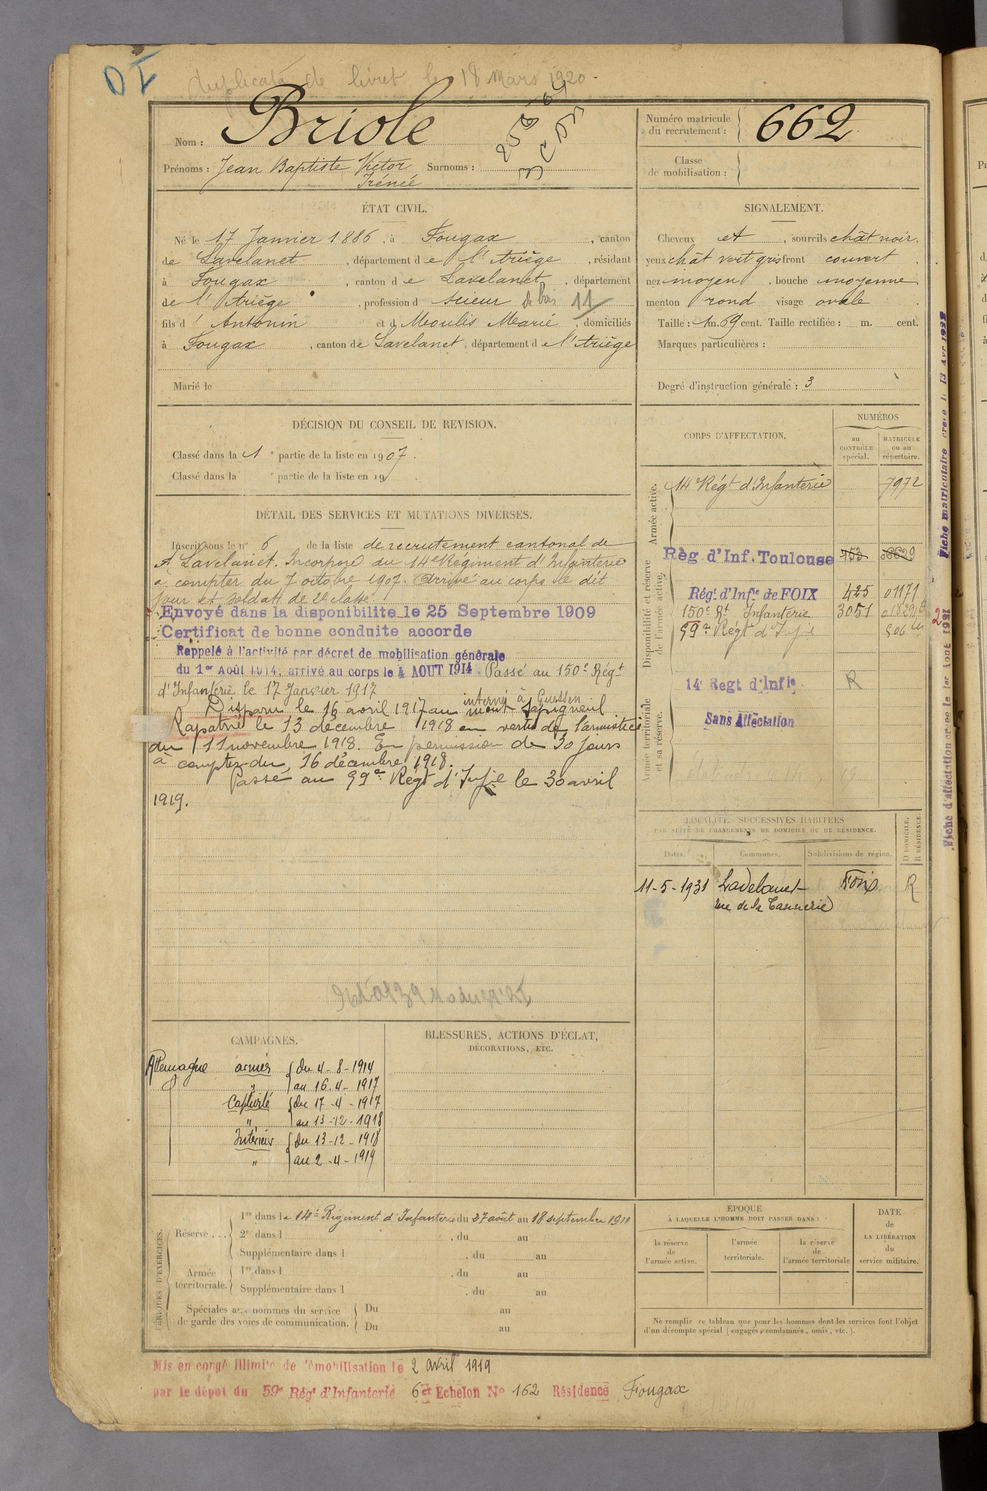 Duplicata de livret le 18 Mars 1920.
Nom : Briole
Prénoms : Jean Baptiste Victor Surnoms :
Irénée
Numéro matricule
du recrutement : 662
Classe
de mobilisation :
ÉTAT CIVIL.
Né le 17 Janvier 1886, à Fougax, canton
de Lavelanet, département de l'Ariège, résidant
à Fougax, canton de Lavelanet, département
de l'Ariège, profession de scieur de bois 11
fils d'Antonin et d Moulis Marie, domiciliés
à Fougax, canton de Lavelanet, département de l'Ariège
Marié le
SIGNALEMENT.
Cheveux et, sourcils chât noir.
yeux chât vert gris front couvert
nez moyen, bouche moyenne
menton rond visage ovale
Taille : 1m. 69 cent. Taille rectifiée : m. cent.
Marques particulières :
Degré d'instruction générale : 3
DÉCISION DU CONSEIL DE REVISION.
Classé dans la 1e partie de la liste en 1907.
Classé dans la e partie de la liste en 19
DÉTAIL DES SERVICES ET MUTATIONS DIVERSES.
Inscrit sous le n° 6 de la liste de recrutement cantonal de
Lavelanet. Incorporé au 14e Régiment d'Infanterie
à compter du 7 octobre 1907. Arrivé au corps le dit
jour et soldat de 2e classe.
Envoyé dans la disponibilite le 25 Septembre 1909
Certificat de bonne conduite accorde
Rappelé à l'activité par décret de mobilisation générale
du 1er Août 1914, arrivé au corps le 4 AOUT 1914 Passé au 150e Régt
d'Infanterie le 17 Janvier 1917
interné à Giessen
Disparu le 16 avril 1917 au mont Sapigneul
Rapatrié le 13 décembre 1918 en vertu de l'armistice
du 11 novembre 1918. En permission de 30 jours
à compter du 16 décembre 1918.
Passé au 99e Régt d'Infie le 30 avril
1919.
CORPS D'AFFECTATION.
NUMÉROS
au
CONTRÔLE
spécial.
MATRICULE
ou au
répertoire.
Armée active.
14 Régt d'Infanterie 7972
Disponibilité et réserve
de l'armée active.
Règ d'Inf. Toulouse 753
Régt d'Infie de FOIX 425 01171
150e Rt Infanterie 3051
99e Régt d'Infie
Armée territoriale
et sa réserve.
14 Regt d'Infie R
Sans Affectation
LOCALITÉS SUCCESSIVES HABITÉES
PAR SUITE DE CHANGEMENTS DE DOMICILE OU DE RÉSIDENCE.
Dates. Communes. Subdivisions de région. D DOMICILE. R RÉSIDENCE.
11-5-1931 Lavelanet Foix R
rue de la Tannerie
Fiche matriculaire
Fiche d'affectation créée le 1er Aout 1931
CAMPAGNES.
Allemagne armées { du 4-8-1914
" au 16-4-1917
Captivité { du 17-4-1917
" au 13-12-1918
Intérieur { du 13-12-1918
" au 2-4-1919
BLESSURES, ACTIONS D'ÉCLAT,
DÉCORATIONS, ETC.
PÉRIODES D'EXERCICES.
Réserve . . .
1re dans le 14e Régiment d'Infanterie du 27 août au 18 septembre 1911
2e dans l , du au
Supplémentaire dans l , du au
Armée
territoriale.
1re dans l , du au
Supplémentaire dans l , du au
Spéciales aux hommes du service
de garde des voies de communication.
Du au
Du au
ÉPOQUE
À LAQUELLE L'HOMME DOIT PASSER DANS :
la réserve
de
l'armée active.
l'armée
territoriale.
la réserve
de
l'armée territoriale
DATE
de
LA LIBÉRATION
du
service militaire.
Ne remplir ce tableau que pour les hommes dont les services font l'objet
d'un décompte spécial (engagés, condamnés, omis, etc.).
Mis en congé illimité de démobilisation le 2 avril 1919
par le dépot du 59e Régt d'Infanterie 6e Echelon No 162 Résidence Fougax